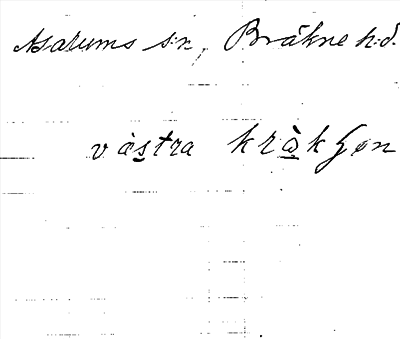 Asarums s:n, Bräkne h:d.
vàs̲tra kràk̲ʃøn